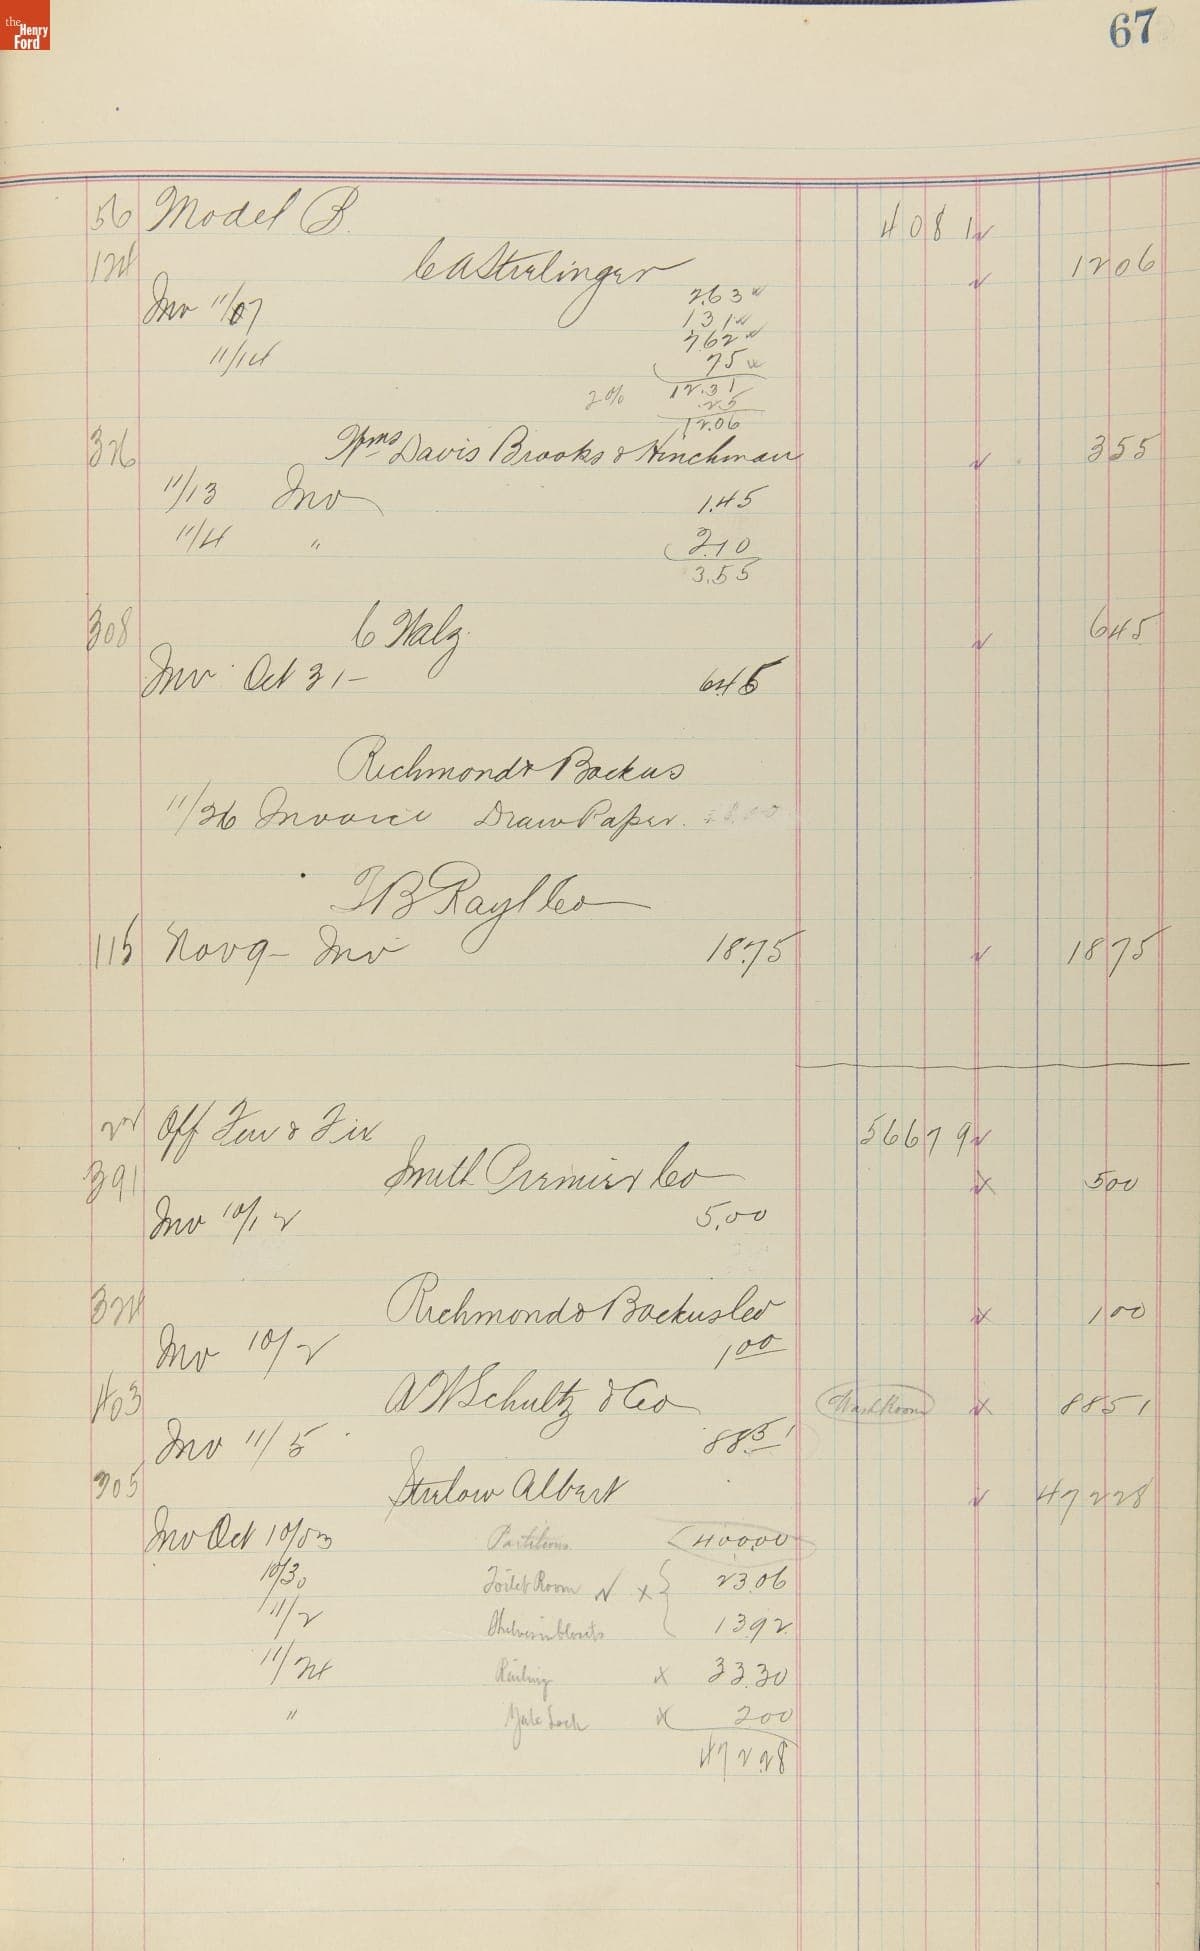 the Henry Ford
67
56 Model B. 4081
124 C A Strelinger 1206
Inv 11/07 2.63
1 31
7.62
11/14 75
2% 12.31
.25
12.06
326 Wms Davis Brooks & Hinchman 355
11/13 Inv 1.45
11/4 " 2.10
3.55
308 C Walz. 645
Inv Oct 31- 6.45
Richmond & Backus
11/26 Invoice Draw Paper.
T B Rayl Co
115 Nov 9- Inv 18.75 1875
22 Off Fur & Fix 56679
391 Smith Premier Co 500
Inv 10/12 5.00
324 Richmond & Backus Co 100
Inv 10/2 1 00
403 A W Schultz & Co Wash Room 8851
Inv 11/5 88.51
305 Strelow Albert 47228
Inv Oct 10/03 Partitions 400.00
10/30 Toilet Room x 23.06
11/2 Shelves in Closets 13.92
11/24 Railing x 33.30
" Yale Lock x 2 00
472.28